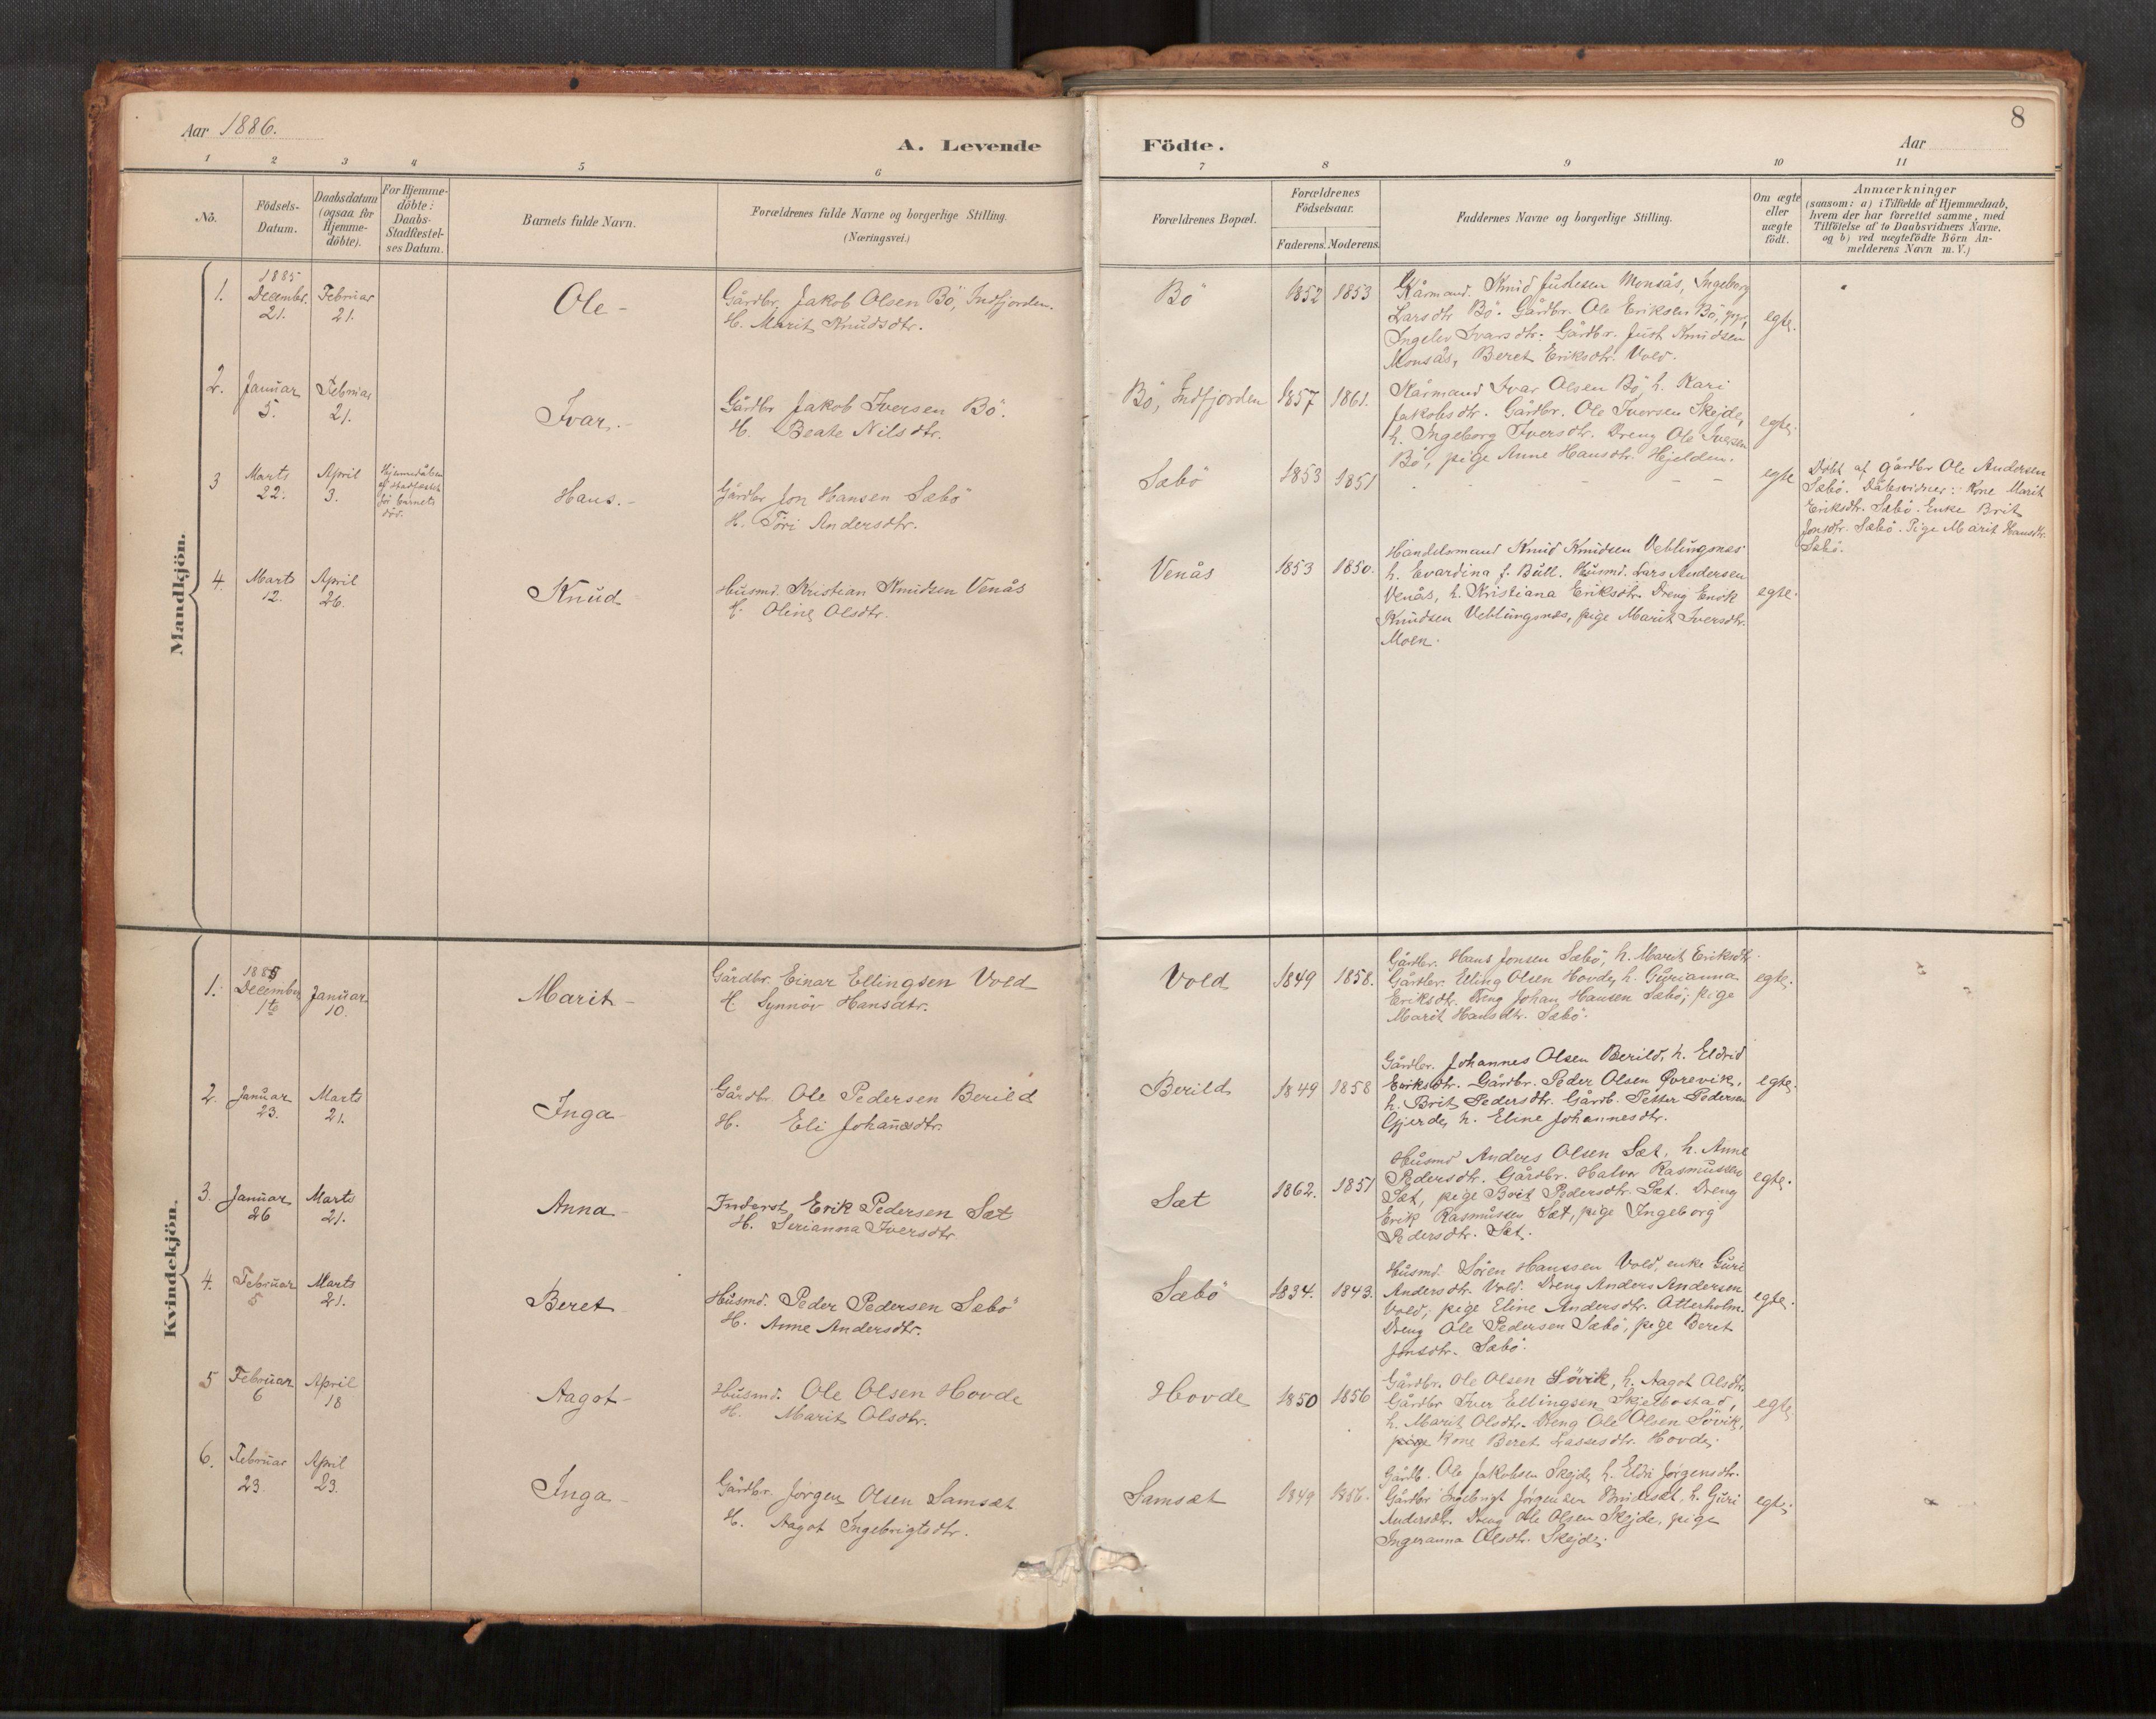 Aar 1886.
A. Levende
Födte.
Aar
8
1 2 3 4 5 6 7 8 9 10 11
No.
Födsels-
Datum.
Daabsdatum
(ogsaa for
Hjemme-
döbte).
For Hjemme-
döbte:
Daabs-
Stadfæstel-
ses Datum.
Barnets fulde Navn.
Forældrenes fulde Navne og borgerlige Stilling.
(Næringsvei.)
Forældrenes Bopæl.
Forældrenes
Födselsaar.
Faderens. Moderens.
Faddernes Navne og borgerlige Stilling.
Om ægte
eller
uægte
födt.
Anmærkninger
(saasom: a) i Tilfælde af Hjemmedaab,
hvem der har forrettet samme, med
Tilföielse af to Daabsvidners Navne,
og b) ved uægtefödte Börn An-
melderens Navn m. V.)
Mandkjön.
1.
1885
Decembr.
21.
Februar
21.
Ole -
Gårdbr. Jakob Olsen Bö, Indfjorden.
H. Marit Knudsdtr.
Bö
1852
1853
Kårmand. Knud Justesen Monsås, Ingeborg
Larsdtr Bö. Gårdbr. Ole Eriksen Bö,
Ingelev Ivarsdtr. Gårdbr. Just Knudsen
Monsås, Beret Eriksdtr. Vold.
egte.
2.
Januar
5.
Februar
21.
Ivar. -
Gårdbr Jakob Iversen Bö.
H. Beate Nilsdtr.
Bö, Indfjorden
1857
1861.
Kårmand Ivar Olsen Bö, h. Kari
Jakobsdtr. Gårdbr. Ole Iversen Skejde,
h. Ingeborg Iversdtr. Dreng Ole Iversen
Bö, pige Anne Hansdtr. Hjelden.
egte.
3
Marts
22.
April
3.
Hjemmedåben
ej stadfæstet
för barnets
död.
Hans. -
Gårdbr Jon Hansen Sæbö
H. Töri Andersdtr.
Sæbö
1853
1851
- - - - -
egte
Döbt af gårdbr Ole Andersen
Sæbö. Dåbsvidner: Kone Marit
Eriksdtr. Sæbö. Enke Brit
Jonsdtr. Sæbö. Pige Marit Hansdtr.
Sæbö.
4.
Marts
12.
April
26.
Knud
Husmd. Kristian Knudsen Venås
H. Oline Olsdtr.
Venås
1853
1850.
Handelsmand Knud Knudsen Veblungsnes
h. Evardina f. Bull. Husmd. Lars Andersen
Venås, h. Kristiana Eriksdtr. Dreng Enok
Knudsen Veblungsnes, pige Marit Iversdtr.
Moen.
egte.
Kvindekjön.
1.
1885
Decembr
1te
Januar
10.
Marit -
Gårdbr. Einar Ellingsen Vold
H Synnöv Hansdtr.
Vold
1849
1858.
Gårdbr. Hans Jonsen Sæbö, h. Marit Eriksdtr.
Gårdbr. Elling Olsen Hovde, h. Gurianna
Eriksdtr. Dreng Johan Hansen Sæbö, pige
Marit Hansdtr. Sæbö.
egte.
2.
Januar
23.
Marts
21.
Inga
Gårdbr. Ole Pedersen Berild
H. Eli Johannesdtr.
Berild
1849
1858
Gårdbr. Johannes Olsen Berild, h. Eldrid
Eriksdtr. Gårdbr. Peder Olsen Øvrevik,
h. Brit Pedersdtr. Gårdb. Petter Pedersen
Gjerde, h. Eline Johannesdtr.
egte.
3.
Januar
26
Marts
21.
Anna
Inderst Erik Pedersen Sæt
H. Serianna Iversdtr
Sæt
1862.
1851
Husmd Anders Olsen Sæt, h. Anne
Pedersdtr. Gårdbr. Halvor Rasmussen
Sæt, pige Brit Pedersdtr. Sæt. Dreng
Erik Rasmussen Sæt, pige Ingeborg
Pedersdtr. Sæt.
egte.
4.
Februar
5
Marts
21.
Beret
Husmd. Peder Pedersen Sæbö
H. Anne Andersdtr.
Sæbö
1834.
1843.
Husmd. Sören Hanssen Vold, enke Guri
Andersdtr. Vold. Dreng Anders Andersen
Vold, pige Eline Andersdtr. Atterholm.
Dreng Ole Pedersen Sæbö, pige Beret
Jonsdtr. Sæbö.
egte.
5
Februar
6
April
18
Aagot -
Husmd. Ole Olsen Hovde
H. Marit Olsdtr.
Hovde
1850
1856
Gårdbr. Ole Olsen Sövik, h. Aagot Olsdtr.
Gårdbr Iver Ellingsen Skjelbostad,
h. Marit Olsdtr. Dreng Ole Olsen Sövik,
pige Kone Beret Lassesdtr. Hovde.
egte.
6.
Februar
23.
April
23.
Inga -
Gårdbr. Jörgen Olsen Samsæt
H. Aagot Ingebrigtsdtr.
Samsæt
1849
1856.
Gårdb. Ole Jakobsen Skejde, h. Eldri Jörgensdtr.
Gårdbr Ingebrigt Jörgensen Brudesæt, h. Guri
Andersdtr. Dreng Ole Olsen Skejde, pige
Ingeranna Olsdtr. Skejde.
egte.